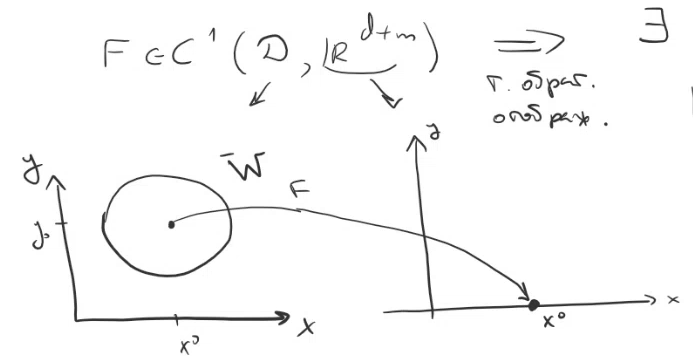 F ∈ C¹ (D, ℝ^{d+m}) ⟹ ∃
т. обрат.
отображ.
y
W
F
y
y₀
x
x⁰
x⁰
x